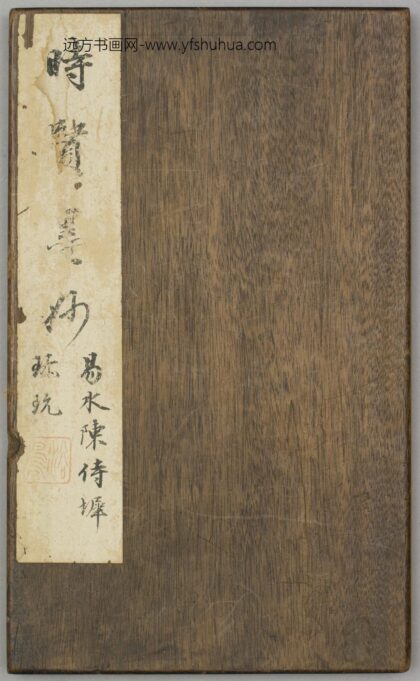 远方书画网-www.yfshuhua.com
時賢墨妙
易水陳侍墀
珎玩